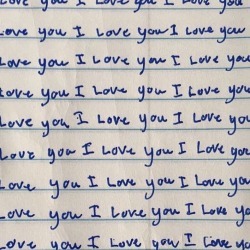 Love you I Love you I Love you
Love you I Love you I Love you
Love you I Love you I Love you
Love you I Love you I Love you
Love you I Love you I Love you
Love you I Love you I Love you
Love you I Love you I Love you
Love you I Love you I Love you
Love you I Love you I Love you